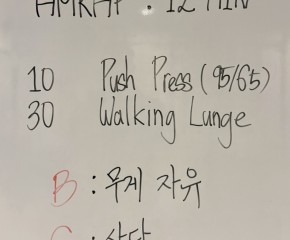 AMRAP : 12 MIN
10 Push Press (95/65)
30 Walking Lunge
B : 무게 자유
C : 상담